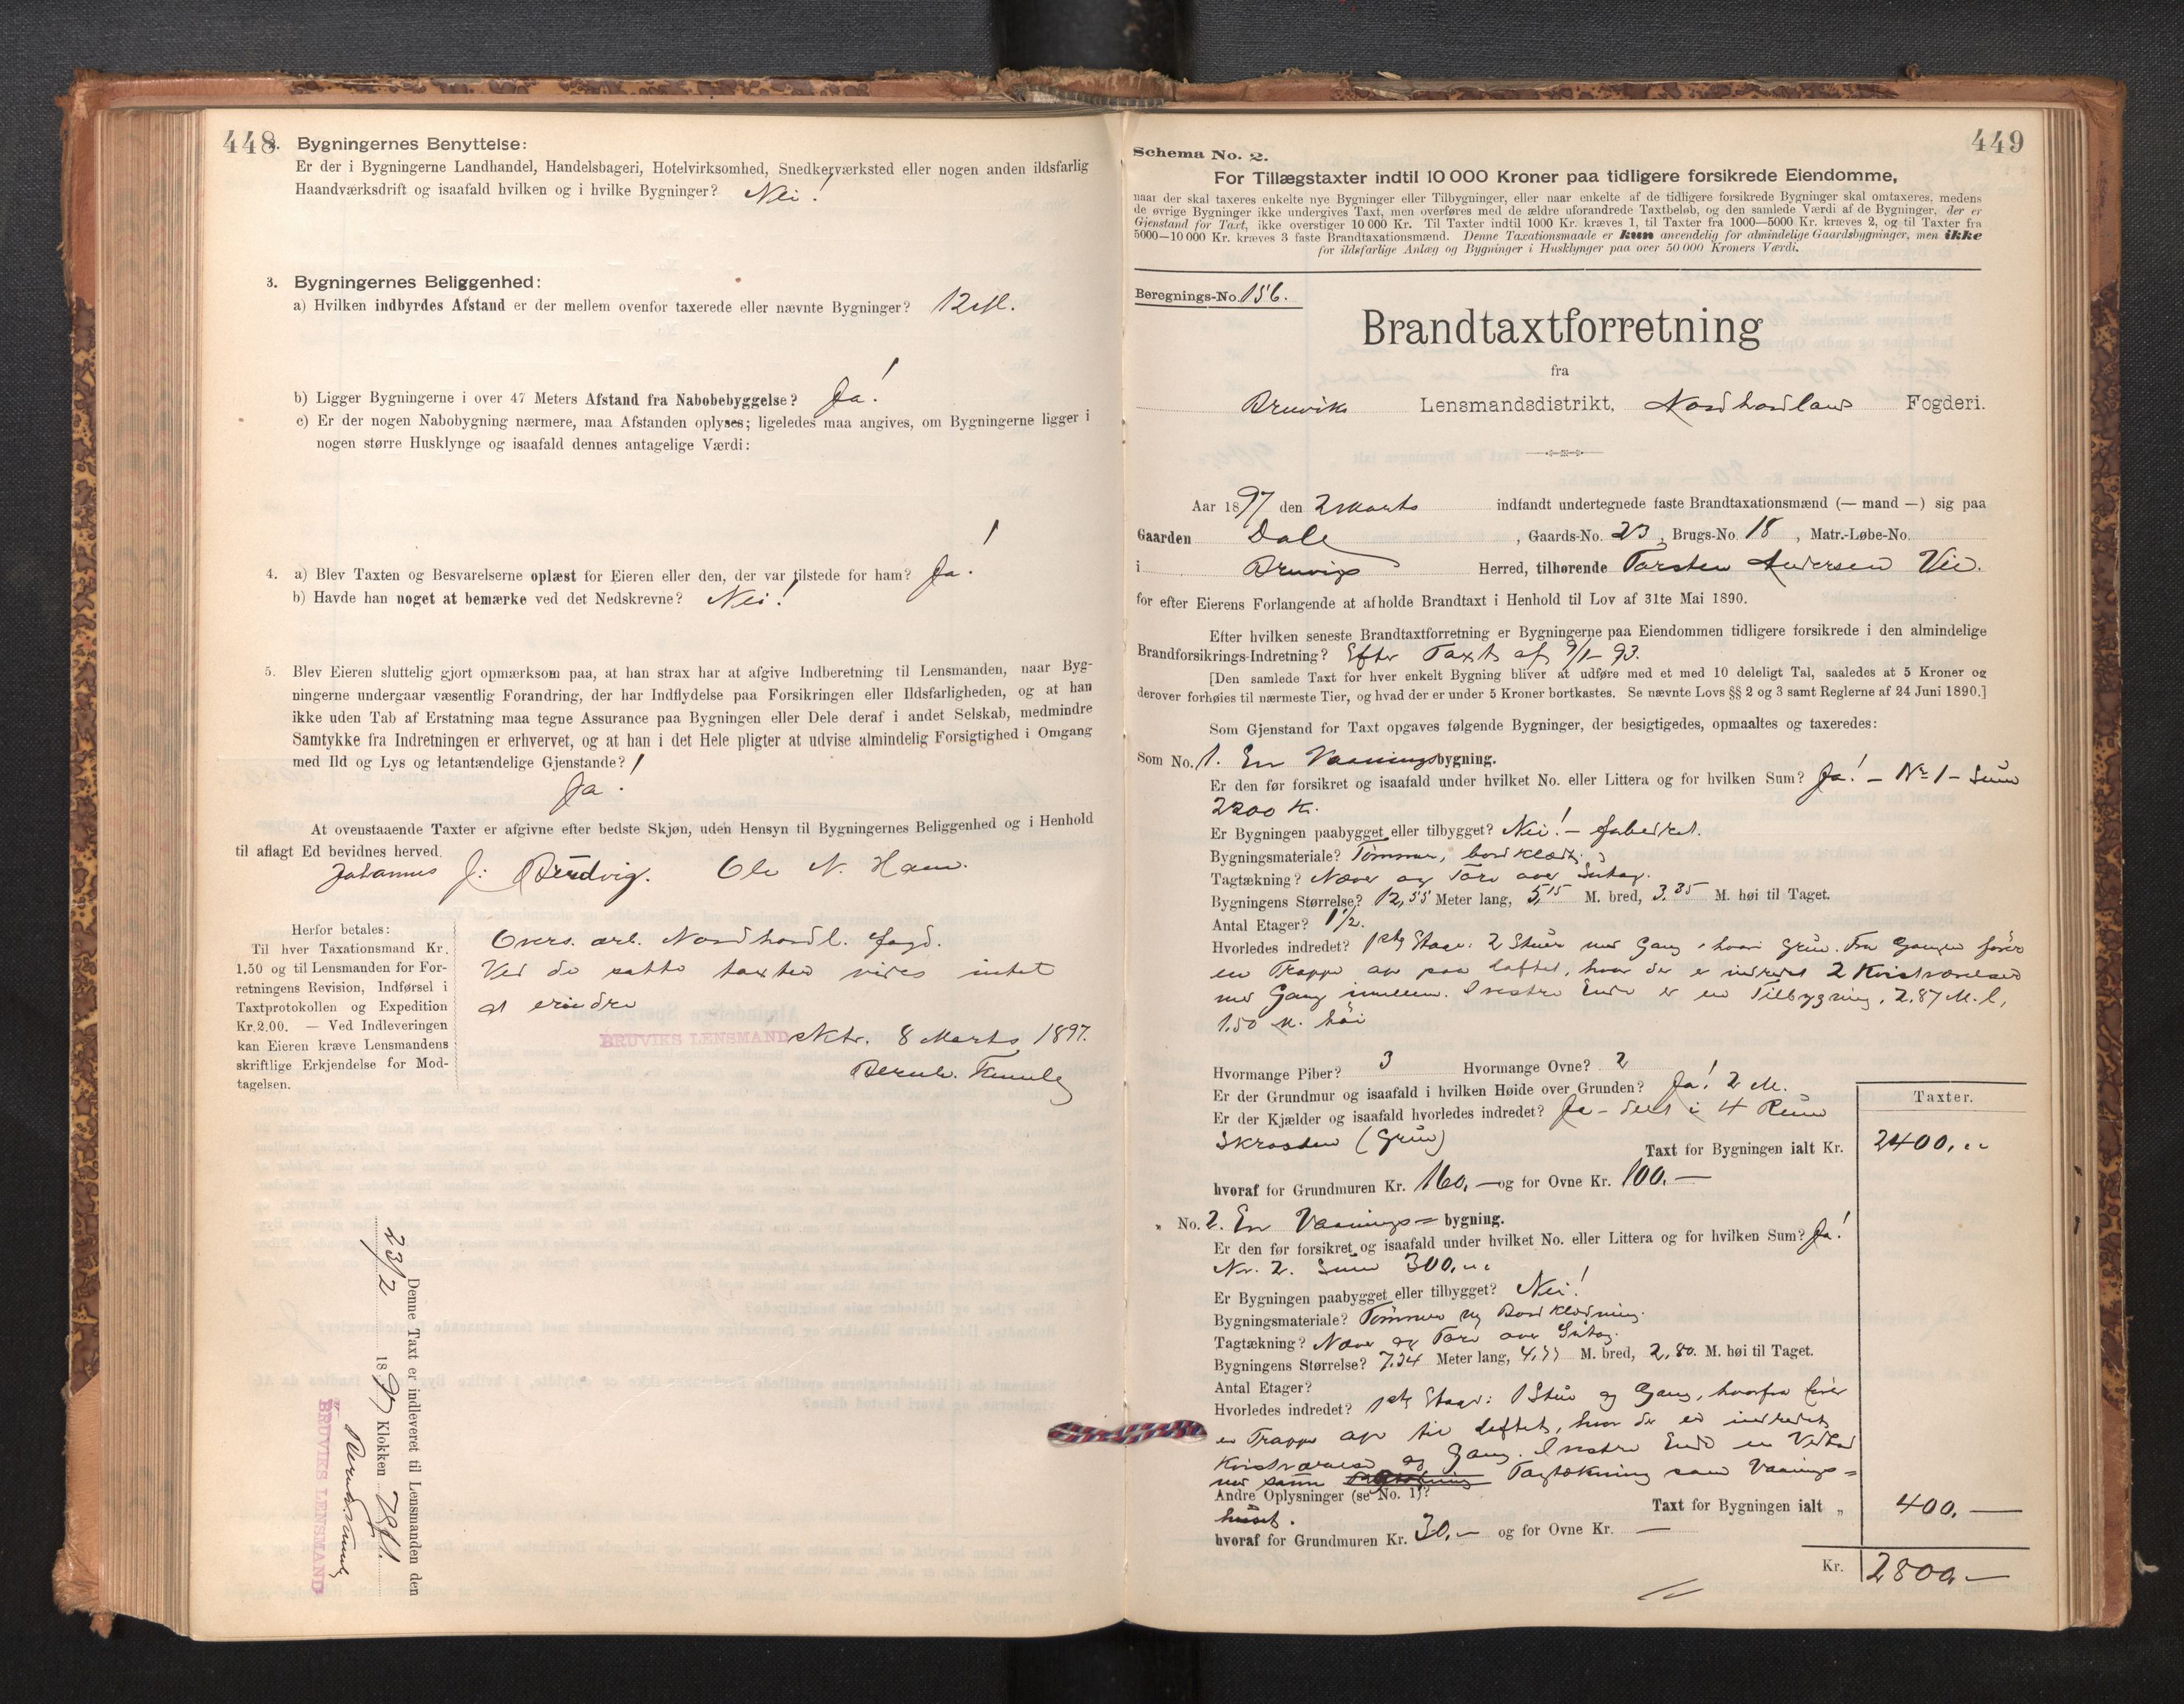 448
2. Bygningernes Benyttelse:
Er der i Bygningerne Landhandel, Handelsbageri, Hotelvirksomhed, Snedkerværksted eller nogen anden ildsfarlig
Haandværksdrift og isaafald hvilken og i hvilke Bygninger? Nei!
3. Bygningernes Beliggenhed:
a) Hvilken indbyrdes Afstand er der mellem ovenfor taxerede eller nævnte Bygninger? 12 M.
b) Ligger Bygningerne i over 47 Meters Afstand fra Nabobebyggelse? Ja!
c) Er der nogen Nabobygning nærmere, maa Afstanden oplyses; ligeledes maa angives, om Bygningerne ligger i
nogen større Husklynge og isaafald dennes antagelige Værdi:
4. a) Blev Taxten og Besvarelserne oplæst for Eieren eller den, der var tilstede for ham? Ja!
b) Havde han noget at bemærke ved det Nedskrevne? Nei!
5. Blev Eieren sluttelig gjort opmærksom paa, at han strax har at afgive Indberetning til Lensmanden, naar Byg-
ningerne undergaar væsentlig Forandring, der har Indflydelse paa Forsikringen eller Ildsfarligheden, og at han
ikke uden Tab af Erstatning maa tegne Assurance paa Bygningen eller Dele deraf i andet Selskab, medmindre
Samtykke fra Indretningen er erhvervet, og at han i det Hele pligter at udvise almindelig Forsigtighed i Omgang
med Ild og Lys og letantændelige Gjenstande?
Ja!
At ovenstaaende Taxter er afgivne efter bedste Skjøn, uden Hensyn til Bygningernes Beliggenhed og i Henhold
til aflagt Ed bevidnes herved.
Johannes J: Ole N.
Herfor betales:
Til hver Taxationsmand Kr.
1.50 og til Lensmanden for For-
retningens Revision, Indførsel i
Taxtprotokollen og Expedition
Kr. 2.00. — Ved Indleveringen
kan Eieren kræve Lensmandens
skriftlige Erkjendelse for Mod-
tagelsen.
Overs. Nordhordl. Fogd.
Ved de satte taxter vides intet
at erindre
BRUVIKS LENSMAND 8 Marts 1897.
Denne Taxt er indleveret til Lensmanden den
23/2 1897 Klokken
BRUVIKS LENSMAND
449
Schema No. 2.
For Tillægstaxter indtil 10 000 Kroner paa tidligere forsikrede Eiendomme,
naar der skal taxeres enkelte nye Bygninger eller Tilbygninger, eller naar enkelte af de tidligere forsikrede Bygninger skal omtaxeres, medens
de øvrige Bygninger ikke undergives Taxt, men overføres med de ældre uforandrede Taxtbeløb, og den samlede Værdi af de Bygninger, der er
Gjenstand for Taxt, ikke overstiger 10 000 Kr. Til Taxter indtil 1000 Kr. kræves 1, til Taxter fra 1000—5000 Kr. kræves 2, og til Taxter fra
5000—10 000 Kr. kræves 3 faste Brandtaxationsmænd. Denne Taxationsmaade er kun anvendelig for almindelige Gaardsbygninger, men ikke
for ildsfarlige Anlæg og Bygninger i Husklynger paa over 50 000 Kroners Værdi.
Beregnings-No. 156.
Brandtaxtforretning
fra
Bruviks Lensmandsdistrikt, Nordhordlands Fogderi.
Aar 1897 den 2 Marts indfandt undertegnede faste Brandtaxationsmænd (— mand —) sig paa
Gaarden Dale, Gaards-No. 23, Brugs-No. 18, Matr.-Løbe-No.
i Bruvigs Herred, tilhørende Torsten Andersen Vii.
for efter Eierens Forlangende at afholde Brandtaxt i Henhold til Lov af 31te Mai 1890.
Efter hvilken seneste Brandtaxtforretning er Bygningerne paa Eiendommen tidligere forsikrede i den almindelige
Brandforsikrings-Indretning? Efter Taxt af 9/1- 93.
[Den samlede Taxt for hver enkelt Bygning bliver at udføre med et med 10 deleligt Tal, saaledes at 5 Kroner og
derover forhøies til nærmeste Tier, og hvad der er under 5 Kroner bortkastes. Se nævnte Lovs §§ 2 og 3 samt Reglerne af 24 Juni 1890.]
Som Gjenstand for Taxt opgaves følgende Bygninger, der besigtigedes, opmaaltes og taxeredes:
Som No. 1. En Vaaningsbygning.
Er den før forsikret og isaafald under hvilket No. eller Littera og for hvilken Sum? Ja! — No 1 — Sum
2200 K.
Er Bygningen paabygget eller tilbygget? Nei! — forbedret.
Bygningsmateriale? Tømmer, bordklædt.
Tagtækning? Næver og Torv over Sutag.
Bygningens Størrelse? 12,55 Meter lang, 5,15 M. bred, 3,85 M. høi til Taget.
Antal Etager? 1 1/2.
Hvorledes indredet? 1ste Etage: 2 Stuer med Gang, hvori Grue. Fra Gangen fører
en Trappe op paa Loftet, hvor der er indredet 2 Kvistværelser
med Gang imellem. I vestre Ende er en Tilbygning, 2,87 M. l,
1,50 M. høi
Hvormange Piber? 3 Hvormange Ovne? 2
Er der Grundmur og isaafald i hvilken Høide over Grunden? Ja! 2 M.
Er der Kjælder og isaafald hvorledes indredet? Ja — delt i 4 Rum
Skorsten (Grue) Taxt for Bygningen ialt Kr.
Taxter.
2400,
hvoraf for Grundmuren Kr. 160,— og for Ovne Kr. 100,—
" No. 2. En Vaanings= bygning.
Er den før forsikret og isaafald under hvilket No. eller Littera og for hvilken Sum? Ja!
Nr. 2. Sum 300,
Er Bygningen paabygget eller tilbygget? Nei!
Bygningsmateriale? Tømmer og Bordklædning.
Tagtækning? Næver og Torv over Sutag.
Bygningens Størrelse? 7,34 Meter lang, M. bred, 2,80. M. høi til Taget.
Antal Etager?
Hvorledes indredet? 1ste Etage: 1 Stue og Gang, hvorfra fører
en Trappe op til Loftet, hvor der er indredet
Kvistværelse og Gang. I vestre Ende en
med samme Tagtækning som Vaanings=
Andre Oplysninger (se No. 1)?
huset. Taxt for Bygningen ialt „ 400,—
hvoraf for Grundmuren Kr. 30,— og for Ovne Kr. —
Kr. 2800,—